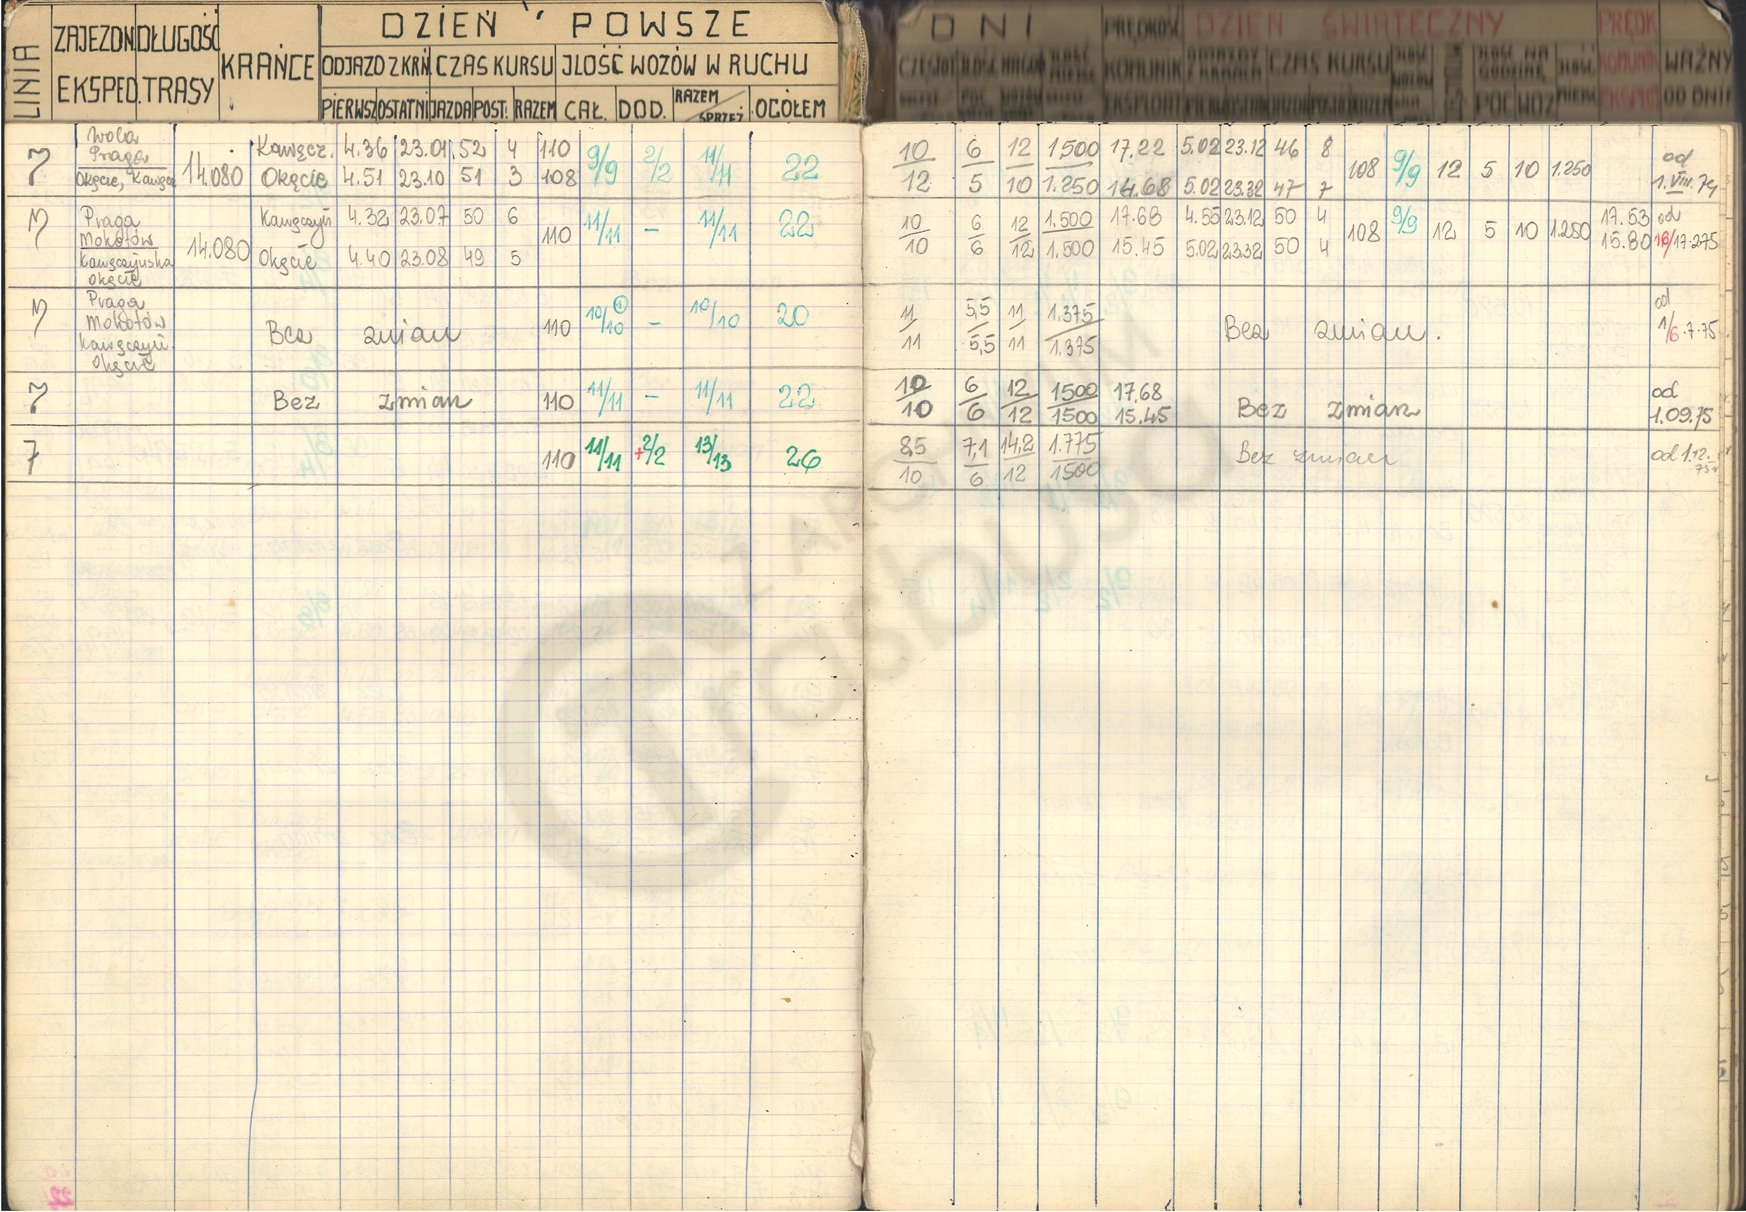 LINIA ZAJEZDN. EKSPED. DŁUGOŚĆ TRASY KRAŃCE
DZIEŃ POWSZE
ODJAZD Z KRŃ. CZAS KURSU JLOŚĆ WOZÓW W RUCHU
PIERWSZ OSTATNI JAZDA POST. RAZEM CAŁ. DOD. RAZEM/SPRZĘŻ. OGÓŁEM
DNI PRĘDKOŚĆ DZIEŃ ŚWIĄTECZNY PRĘDK
KOMUNIK CZAS KURSU KOMUNIK WAŻNY
EKSPLOAT OD DNIA
Wola
Praga
Okęcie, Kawęcz
7 14.080 Kawęcz. 4.36 23.01 52 4 110 9/9 2/2 11/11 22
Okęcie 4.51 23.10 51 3 108
10 6 12 1.500 17.22 5.02 23.12 46 8 108 9/9 12 5 10 1.250 od
12 5 10 1.250 14.68 5.02 23.32 47 7 1.VIII.74
Praga
Mokotów
Kawęczyńska
Okęcie
7 14.080 Kawęczyń 4.32 23.07 50 6 110 11/11 – 11/11 22
Okęcie 4.40 23.08 49 5
10 6 12 1.500 17.68 4.55 23.12 50 4 108 9/9 12 5 10 1.250 17.53 od
10 6 12 1.500 15.45 5.02 23.32 50 4 15.80 16/17.2.75
Praga
Mokotów
Kawęczyń.
Okęcie
7 Bez zmian 110 10/10 – 10/10 20
11 5,5 11 1.375 Bez zmian. od
11 5,5 11 1.375 1/6.7.75
7 Bez zmian 110 11/11 – 11/11 22
10 6 12 1500 17.68 Bez zmian od
10 6 12 1500 15.45 1.09.75
7 110 11/11 +2/2 13/13 26
8,5 7,1 14,2 1.775 Bez zmian od 1.12.
10 6 12 1500 75r
Z ARCHIWUM
Trasbusa
22